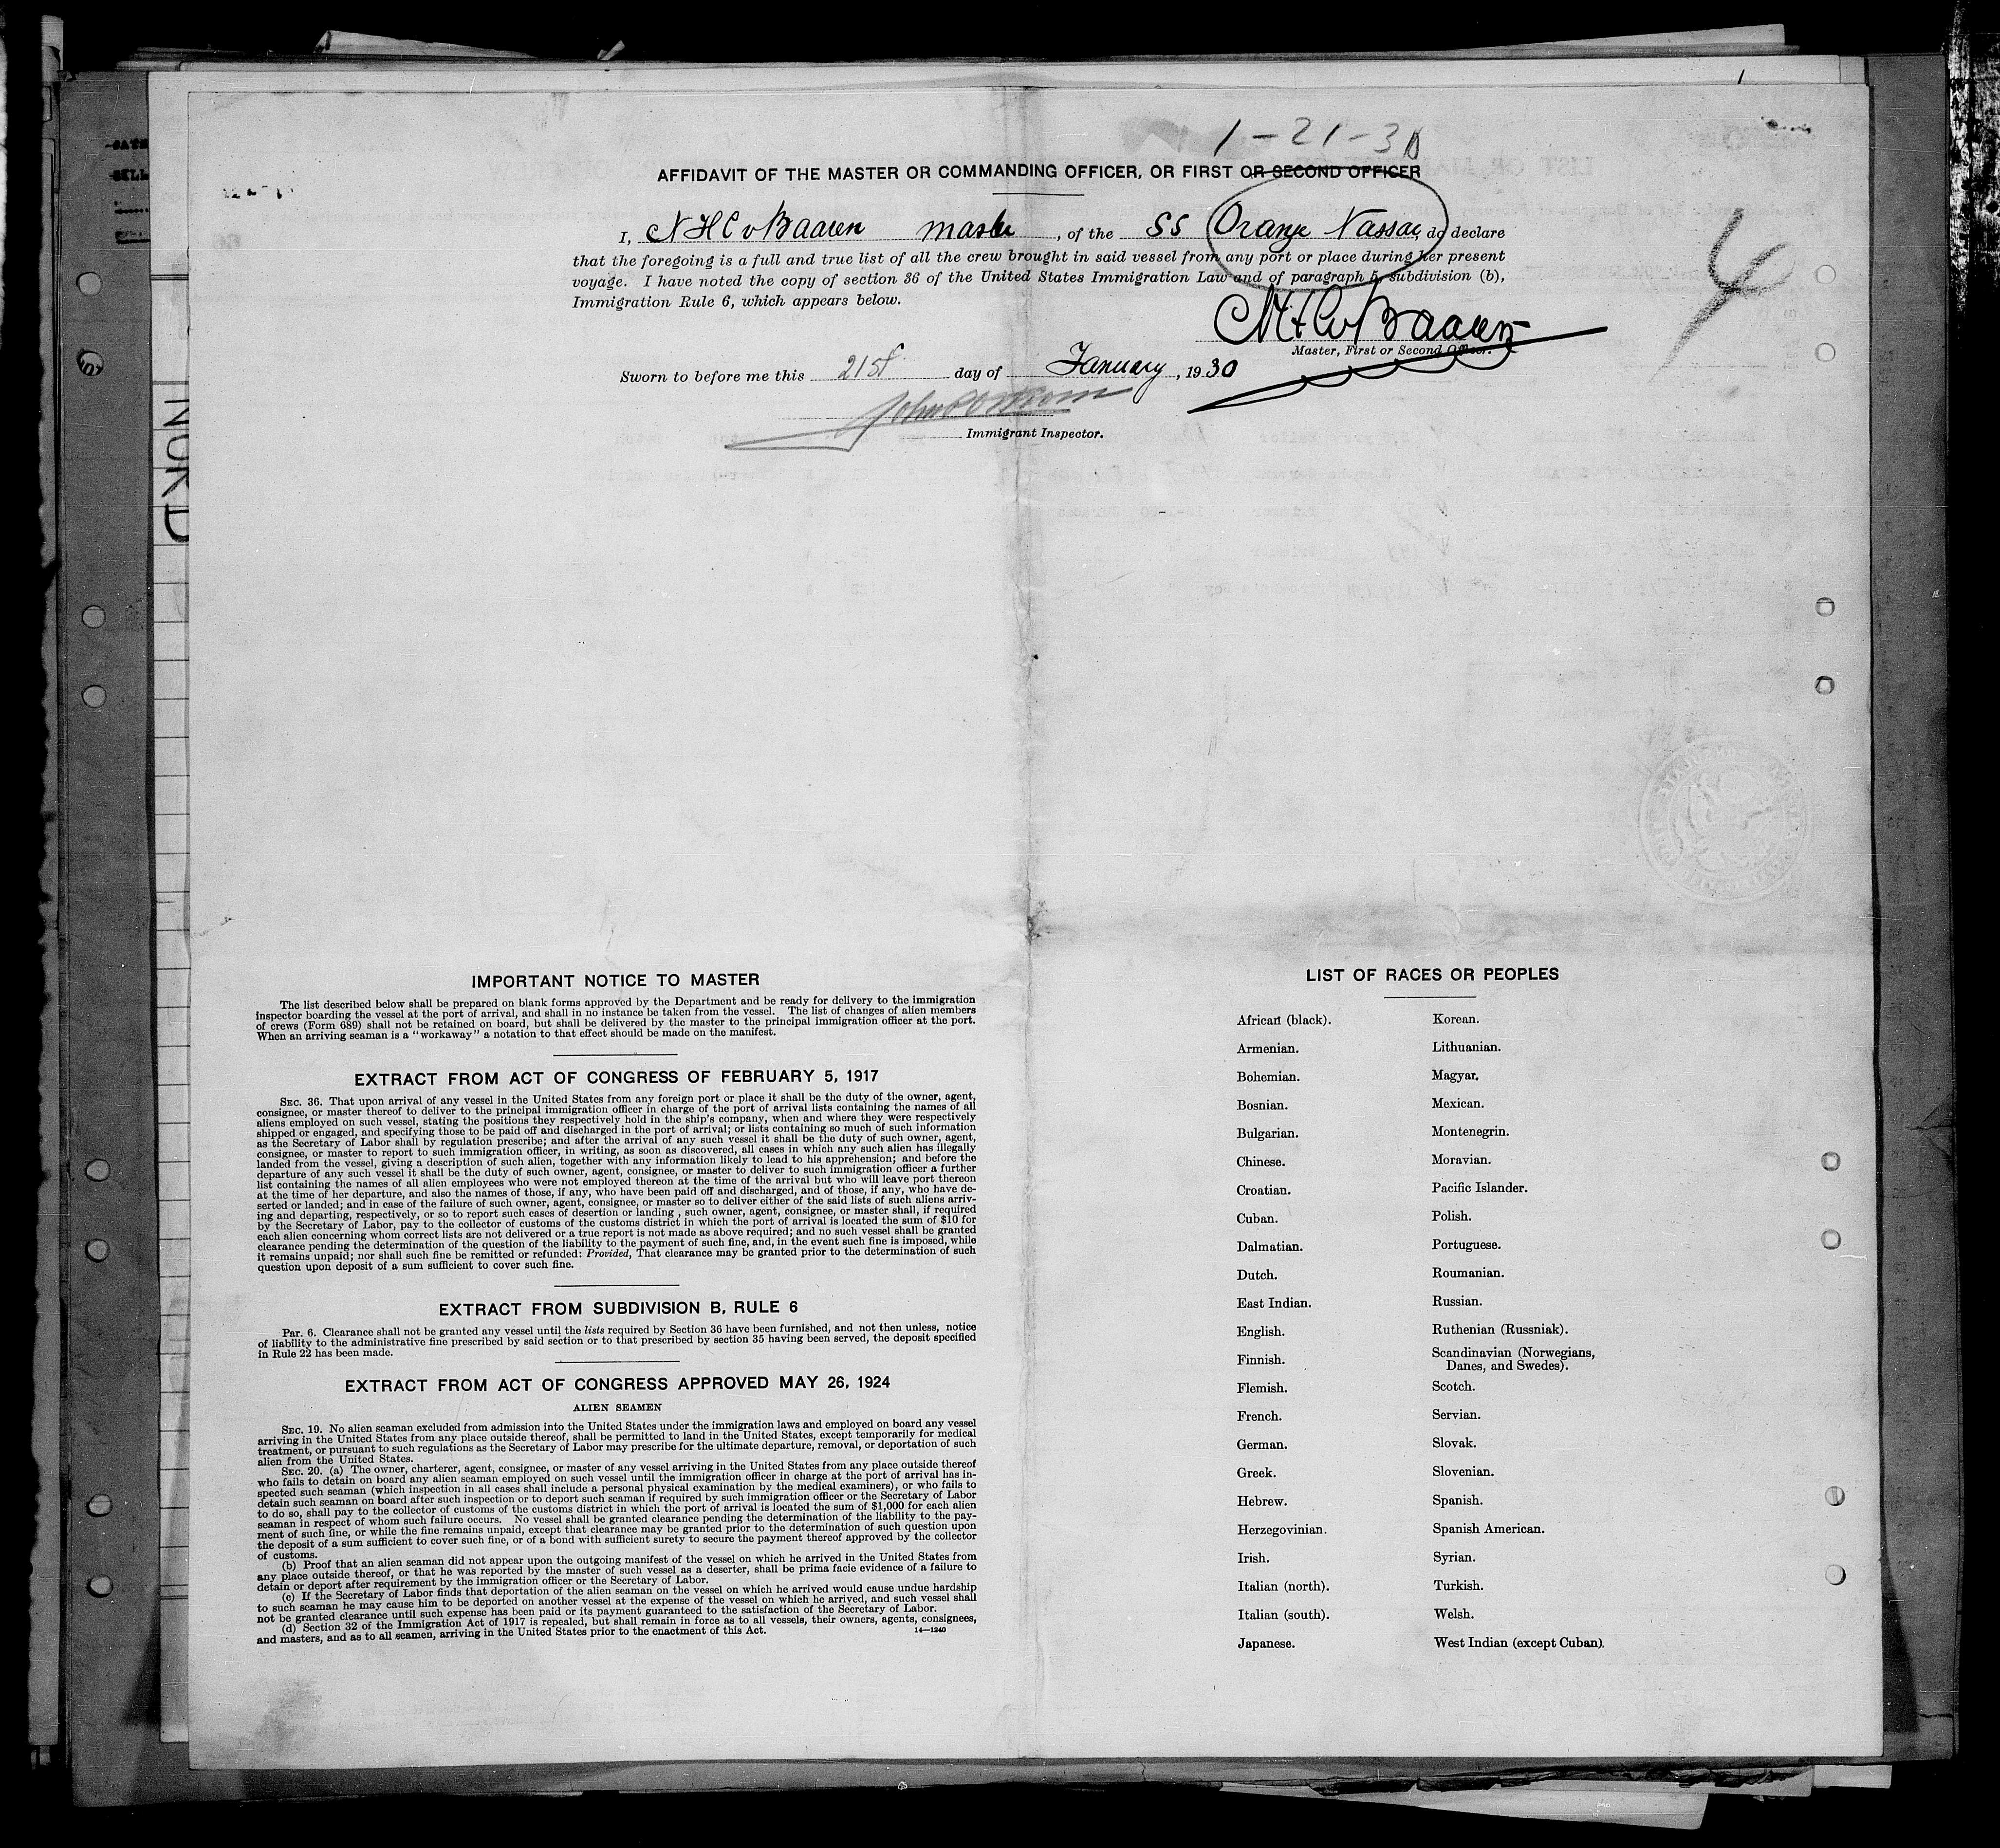 1-21-30
AFFIDAVIT OF THE MASTER OR COMMANDING OFFICER, OR FIRST OR SECOND OFFICER
I, NHC v Baaren master, of the SS Oranje Nassau, do declare
that the foregoing is a full and true list of all the crew brought in said vessel from any port or place during her present
voyage. I have noted the copy of section 36 of the United States Immigration Law and of paragraph 5, subdivision (b),
Immigration Rule 6, which appears below.
4
NHC v Baaren
Master, First or Second Officer.
Sworn to before me this 21st day of January, 1930
John
Immigrant Inspector.
IMPORTANT NOTICE TO MASTER
The list described below shall be prepared on blank forms approved by the Department and be ready for delivery to the immigration
inspector boarding the vessel at the port of arrival, and shall in no instance be taken from the vessel. The list of changes of alien members
of crews (Form 689) shall not be retained on board, but shall be delivered by the master to the principal immigration officer at the port.
When an arriving seaman is a "workaway" a notation to that effect should be made on the manifest.
EXTRACT FROM ACT OF CONGRESS OF FEBRUARY 5, 1917
SEC. 36. That upon arrival of any vessel in the United States from any foreign port or place it shall be the duty of the owner, agent,
consignee, or master thereof to deliver to the principal immigration officer in charge of the port of arrival lists containing the names of all
aliens employed on such vessel, stating the positions they respectively hold in the ship's company, when and where they were respectively
shipped or engaged, and specifying those to be paid off and discharged in the port of arrival; or lists containing so much of such information
as the Secretary of Labor shall by regulation prescribe; and after the arrival of any such vessel it shall be the duty of such owner, agent,
consignee, or master to report to such immigration officer, in writing, as soon as discovered, all cases in which any such alien has illegally
landed from the vessel, giving a description of such alien, together with any information likely to lead to his apprehension; and before the
departure of any such vessel it shall be the duty of such owner, agent, consignee, or master to deliver to such immigration officer a further
list containing the names of all alien employees who were not employed thereon at the time of the arrival but who will leave port thereon
at the time of her departure, and also the names of those, if any, who have been paid off and discharged, and of those, if any, who have de-
serted or landed; and in case of the failure of such owner, agent, consignee, or master so to deliver either of the said lists of such aliens arriv-
ing and departing, respectively, or so to report such cases of desertion or landing, such owner, agent, consignee, or master shall, if required
by the Secretary of Labor, pay to the collector of customs of the customs district in which the port of arrival is located the sum of $10 for
each alien concerning whom correct lists are not delivered or a true report is not made as above required; and no such vessel shall be granted
clearance pending the determination of the question of the liability to the payment of such fine, and, in the event such fine is imposed, while
it remains unpaid; nor shall such fine be remitted or refunded: Provided, That clearance may be granted prior to the determination of such
question upon deposit of a sum sufficient to cover such fine.
EXTRACT FROM SUBDIVISION B, RULE 6
Par. 6. Clearance shall not be granted any vessel until the lists required by Section 36 have been furnished, and not then unless, notice
of liability to the administrative fine prescribed by said section or to that prescribed by section 35 having been served, the deposit specified
in Rule 22 has been made.
EXTRACT FROM ACT OF CONGRESS APPROVED MAY 26, 1924
ALIEN SEAMEN
SEC. 19. No alien seaman excluded from admission into the United States under the immigration laws and employed on board any vessel
arriving in the United States from any place outside thereof, shall be permitted to land in the United States, except temporarily for medical
treatment, or pursuant to such regulations as the Secretary of Labor may prescribe for the ultimate departure, removal, or deportation of such
alien from the United States.
SEC. 20. (a) The owner, charterer, agent, consignee, or master of any vessel arriving in the United States from any place outside thereof
who fails to detain on board any alien seaman employed on such vessel until the immigration officer in charge at the port of arrival has in-
spected such seaman (which inspection in all cases shall include a personal physical examination by the medical examiners), or who fails to
detain such seaman on board after such inspection or to deport such seaman if required by such immigration officer or the Secretary of Labor
to do so, shall pay to the collector of customs of the customs district in which the port of arrival is located the sum of $1,000 for each alien
seaman in respect of whom such failure occurs. No vessel shall be granted clearance pending the determination of the liability to the pay-
ment of such fine, or while the fine remains unpaid, except that clearance may be granted prior to the determination of such question upon
the deposit of a sum sufficient to cover such fine, or of a bond with sufficient surety to secure the payment thereof approved by the collector
of customs.
(b) Proof that an alien seaman did not appear upon the outgoing manifest of the vessel on which he arrived in the United States from
any place outside thereof, or that he was reported by the master of such vessel as a deserter, shall be prima facie evidence of a failure to
detain or deport after requirement by the immigration officer or the Secretary of Labor.
(c) If the Secretary of Labor finds that deportation of the alien seaman on the vessel on which he arrived would cause undue hardship
to such seaman he may cause him to be deported on another vessel at the expense of the vessel on which he arrived, and such vessel shall
not be granted clearance until such expense has been paid or its payment guaranteed to the satisfaction of the Secretary of Labor.
(d) Section 32 of the Immigration Act of 1917 is repealed, but shall remain in force as to all vessels, their owners, agents, consignees,
and masters, and as to all seamen, arriving in the United States prior to the enactment of this Act.
14—1240
LIST OF RACES OR PEOPLES
African (black). Korean.
Armenian. Lithuanian.
Bohemian. Magyar.
Bosnian. Mexican.
Bulgarian. Montenegrin.
Chinese. Moravian.
Croatian. Pacific Islander.
Cuban. Polish.
Dalmatian. Portuguese.
Dutch. Roumanian.
East Indian. Russian.
English. Ruthenian (Russniak).
Finnish. Scandinavian (Norwegians,
Danes, and Swedes).
Flemish. Scotch.
French. Servian.
German. Slovak.
Greek. Slovenian.
Hebrew. Spanish.
Herzegovinian. Spanish American.
Irish. Syrian.
Italian (north). Turkish.
Italian (south). Welsh.
Japanese. West Indian (except Cuban).